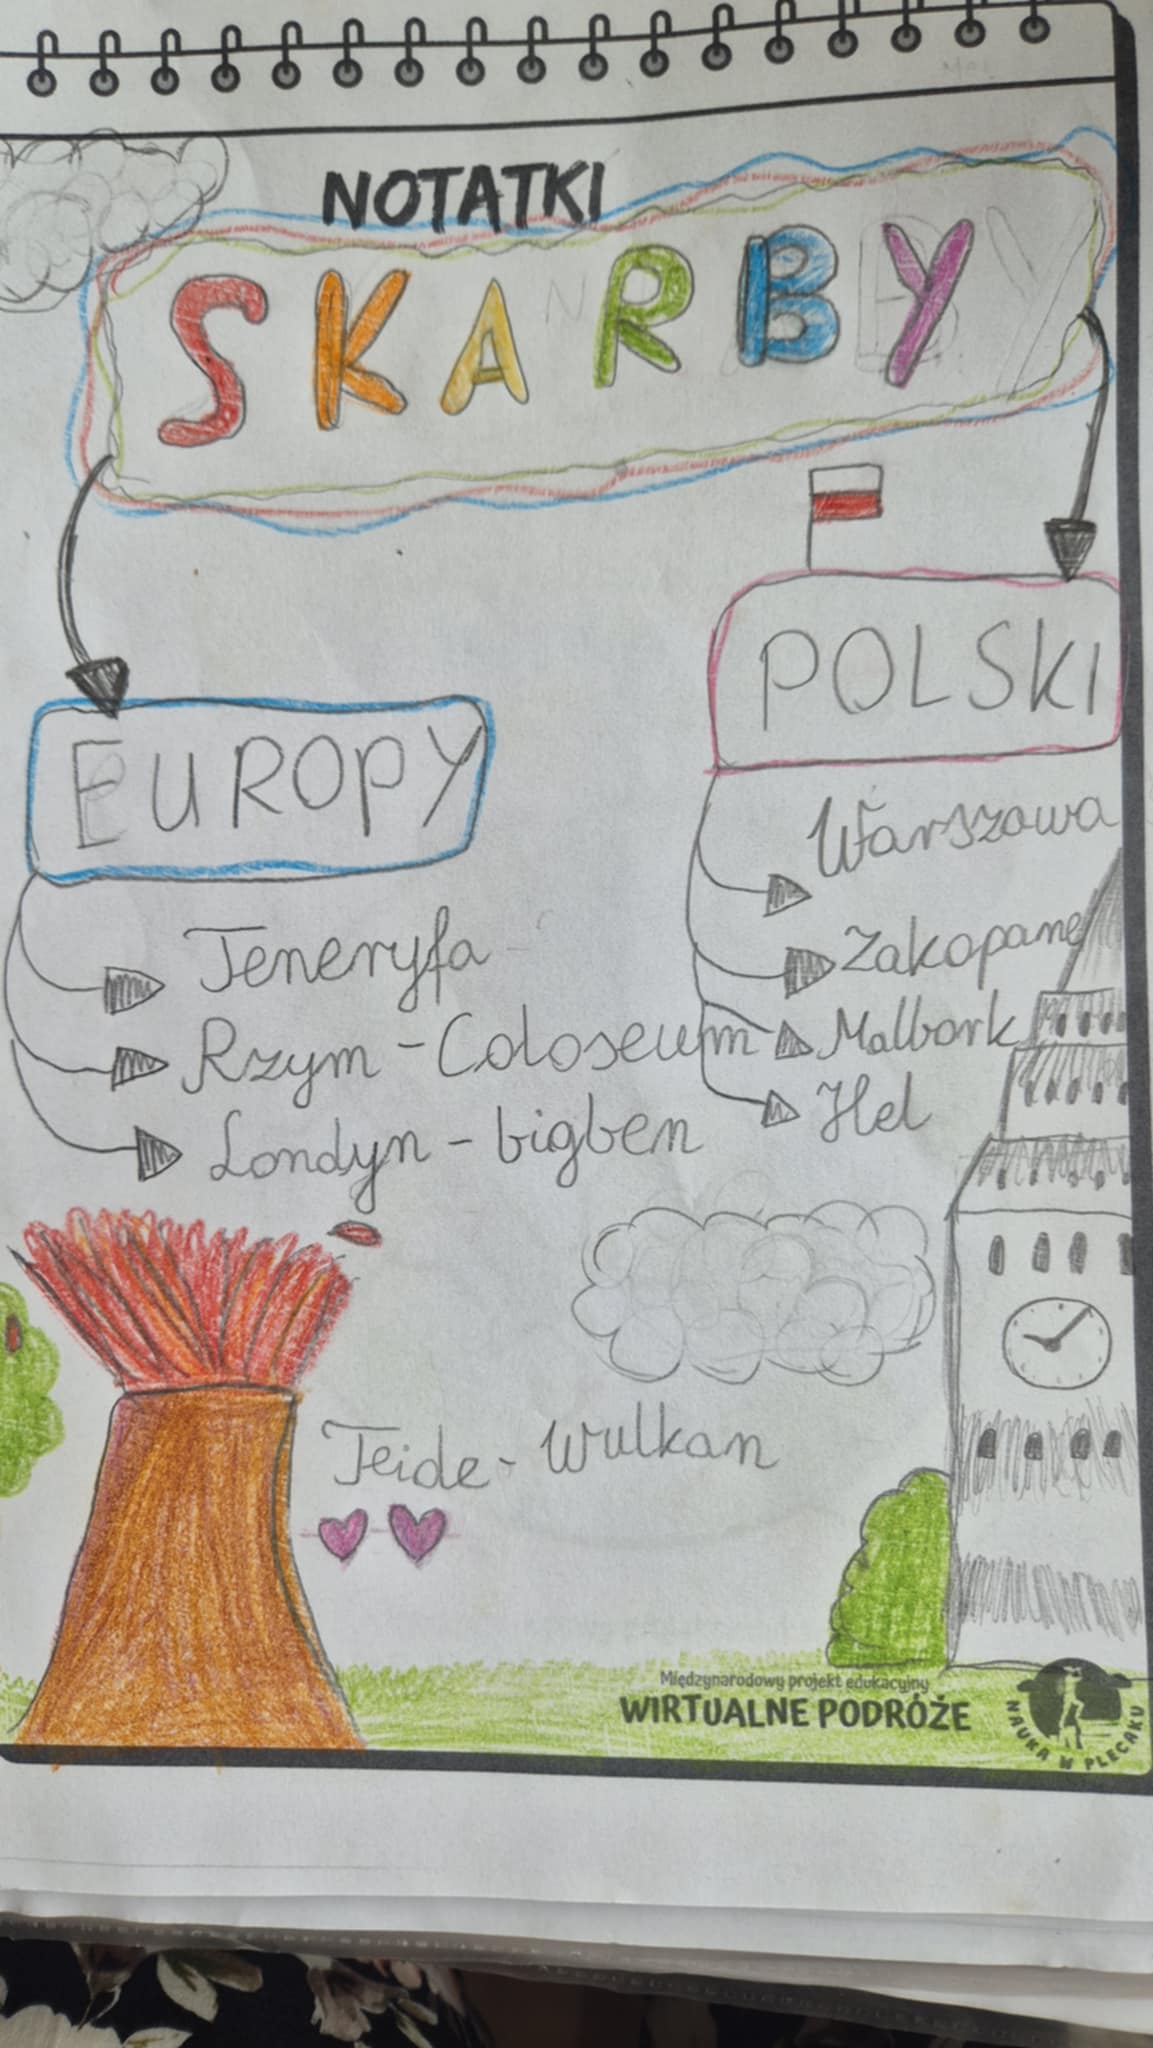 NOTATKI
SKARBY
EUROPY
Teneryfa
Rzym - Coloseum
Londyn - bigben
POLSKI
Warszawa
Zakopane
Malbork
Hel
Teide - Wulkan
Międzynarodowy projekt edukacyjny
WIRTUALNE PODRÓŻE
NAUKA W PLECAKU